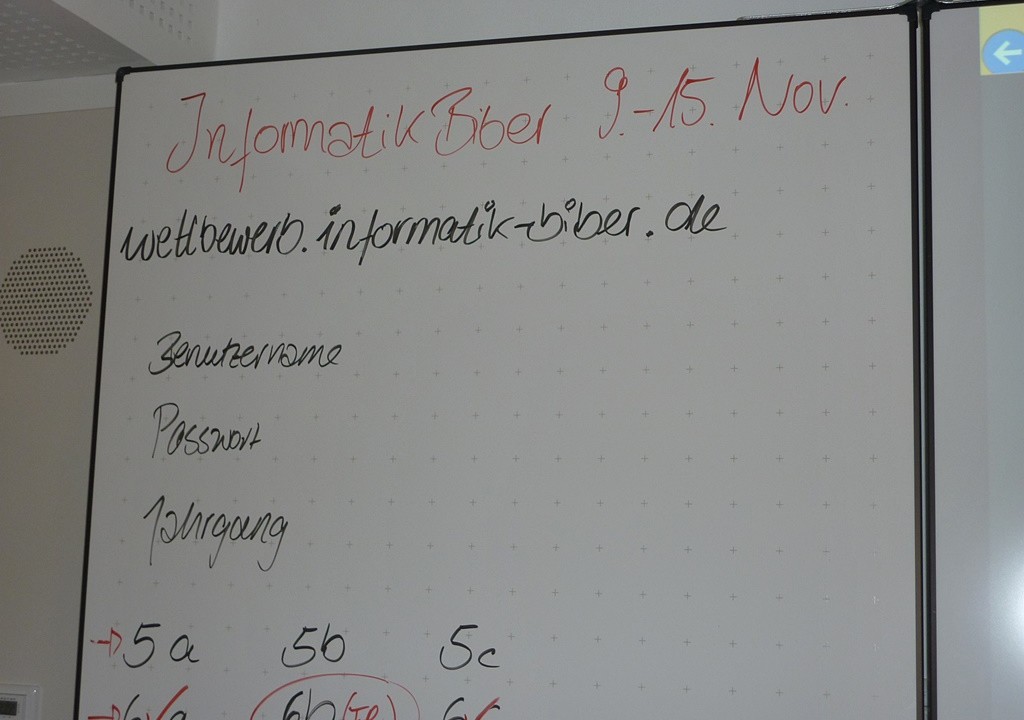 Informatik Biber 9.-15. Nov.
wettbewerb.informatik-biber.de
Benutzername
Passwort
Jahrgang
→ 5a 5b 5c